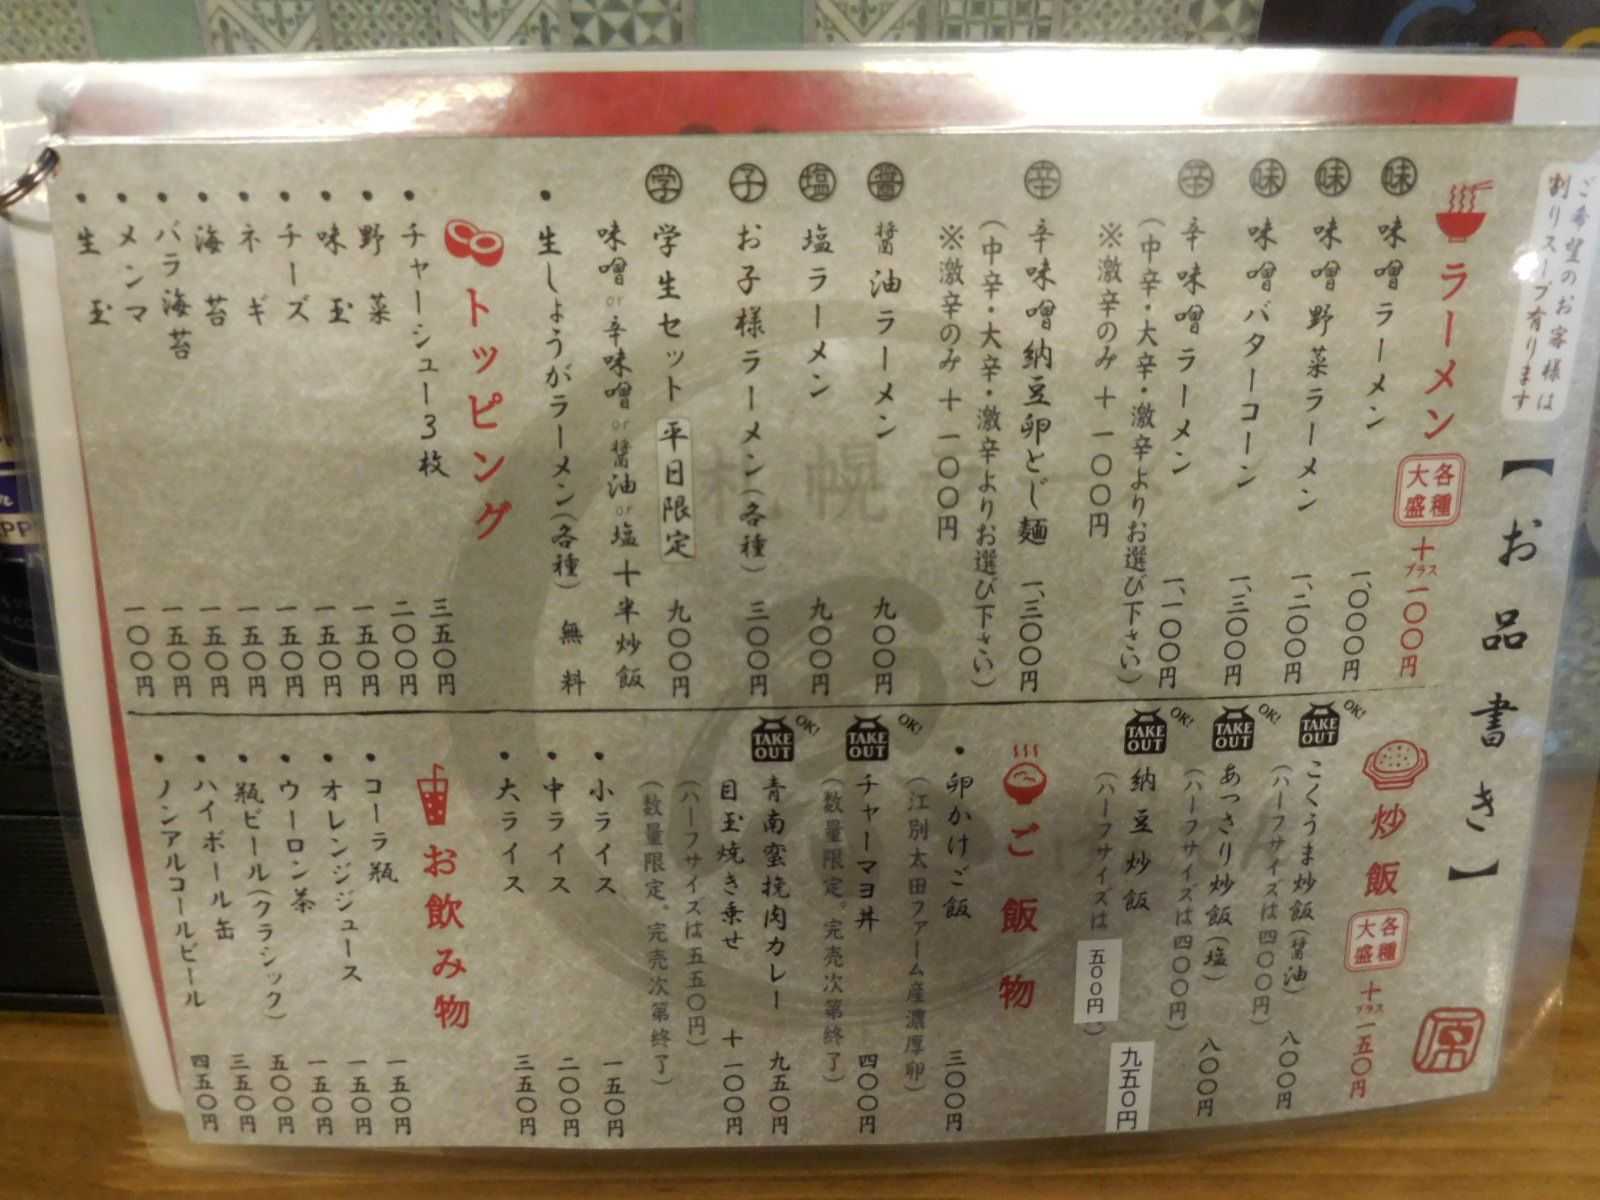 ご希望のお客様は
割りスープ有ります
【お品書き】
ラーメン
各種大盛
＋プラス一〇〇円
味 味噌ラーメン 一、〇〇〇円
味 味噌野菜ラーメン 一、二〇〇円
味 味噌バターコーン 一、三〇〇円
辛 辛味噌ラーメン 一、一〇〇円
(中辛・大辛・激辛よりお選び下さい)
※激辛のみ＋一〇〇円
辛 辛味噌納豆卵とじ麺 一、三〇〇円
(中辛・大辛・激辛よりお選び下さい)
※激辛のみ＋一〇〇円
醤 醤油ラーメン 九〇〇円
塩 塩ラーメン 九〇〇円
子 お子様ラーメン(各種) 三〇〇円
学 学生セット 平日限定 九〇〇円
味噌or辛味噌or醤油or塩＋半炒飯
・生しょうがラーメン(各種) 無料
トッピング
・チャーシュー3枚 三五〇円
・野菜 二〇〇円
・味玉 一五〇円
・チーズ 一五〇円
・ネギ 一五〇円
・海苔 一五〇円
・バラ海苔 一五〇円
・メンマ 一五〇円
・生玉 一〇〇円
炒飯
各種大盛
＋プラス一五〇円
TAKE OUT OK!
こくうま炒飯(醤油) 八〇〇円
(ハーフサイズは四〇〇円)
TAKE OUT OK!
あっさり炒飯(塩) 八〇〇円
(ハーフサイズは四〇〇円)
TAKE OUT OK!
納豆炒飯 九五〇円
(ハーフサイズは五〇〇円)
ご飯物
・卵かけご飯 三〇〇円
(江別太田ファーム産濃厚卵)
TAKE OUT OK!
チャーマヨ丼 四〇〇円
(数量限定。完売次第終了)
TAKE OUT OK!
青南蛮挽肉カレー 九五〇円
目玉焼き乗せ ＋一〇〇円
(ハーフサイズは五五〇円)
(数量限定。完売次第終了)
・小ライス 一五〇円
・中ライス 二〇〇円
・大ライス 三五〇円
お飲み物
・コーラ瓶 一五〇円
・オレンジジュース 一五〇円
・ウーロン茶 一五〇円
・瓶ビール(クラシック) 五〇〇円
・ハイボール缶 三五〇円
・ノンアルコールビール 四五〇円